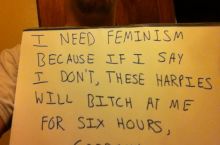 I NEED FEMINISM
BECAUSE IF I SAY
I DON'T, THESE HARPIES
WILL BITCH AT ME
FOR SIX HOURS,